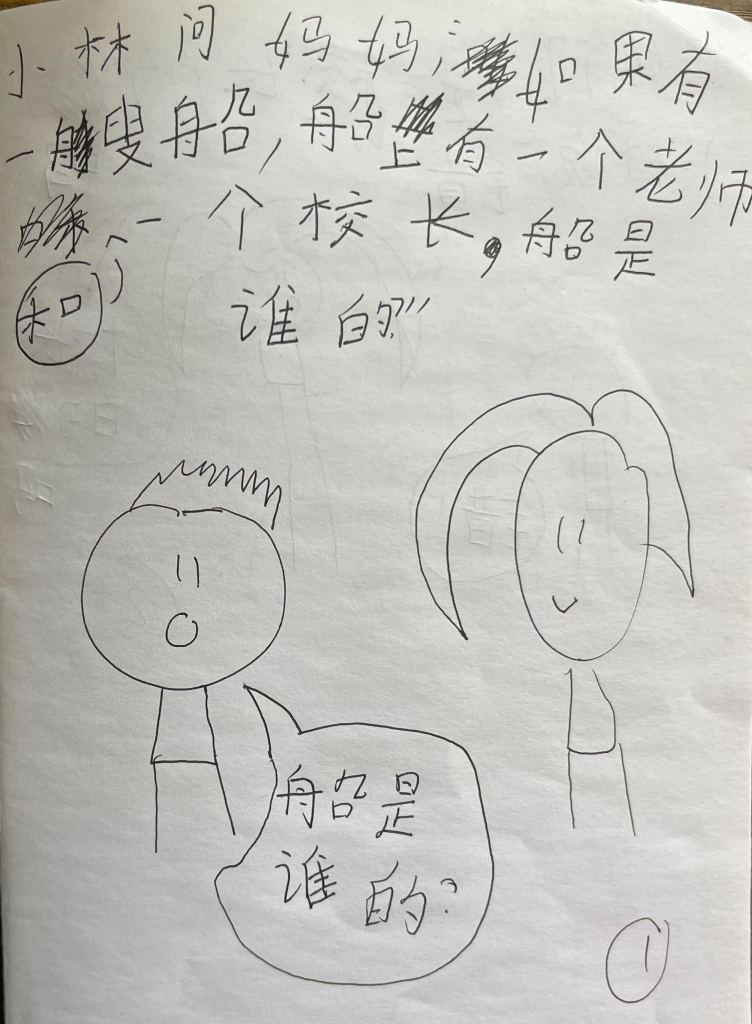 小林问妈妈；如果有
一艘船，船上有一个老师
和一个校长，船是
谁的？”
船是
谁的？
1